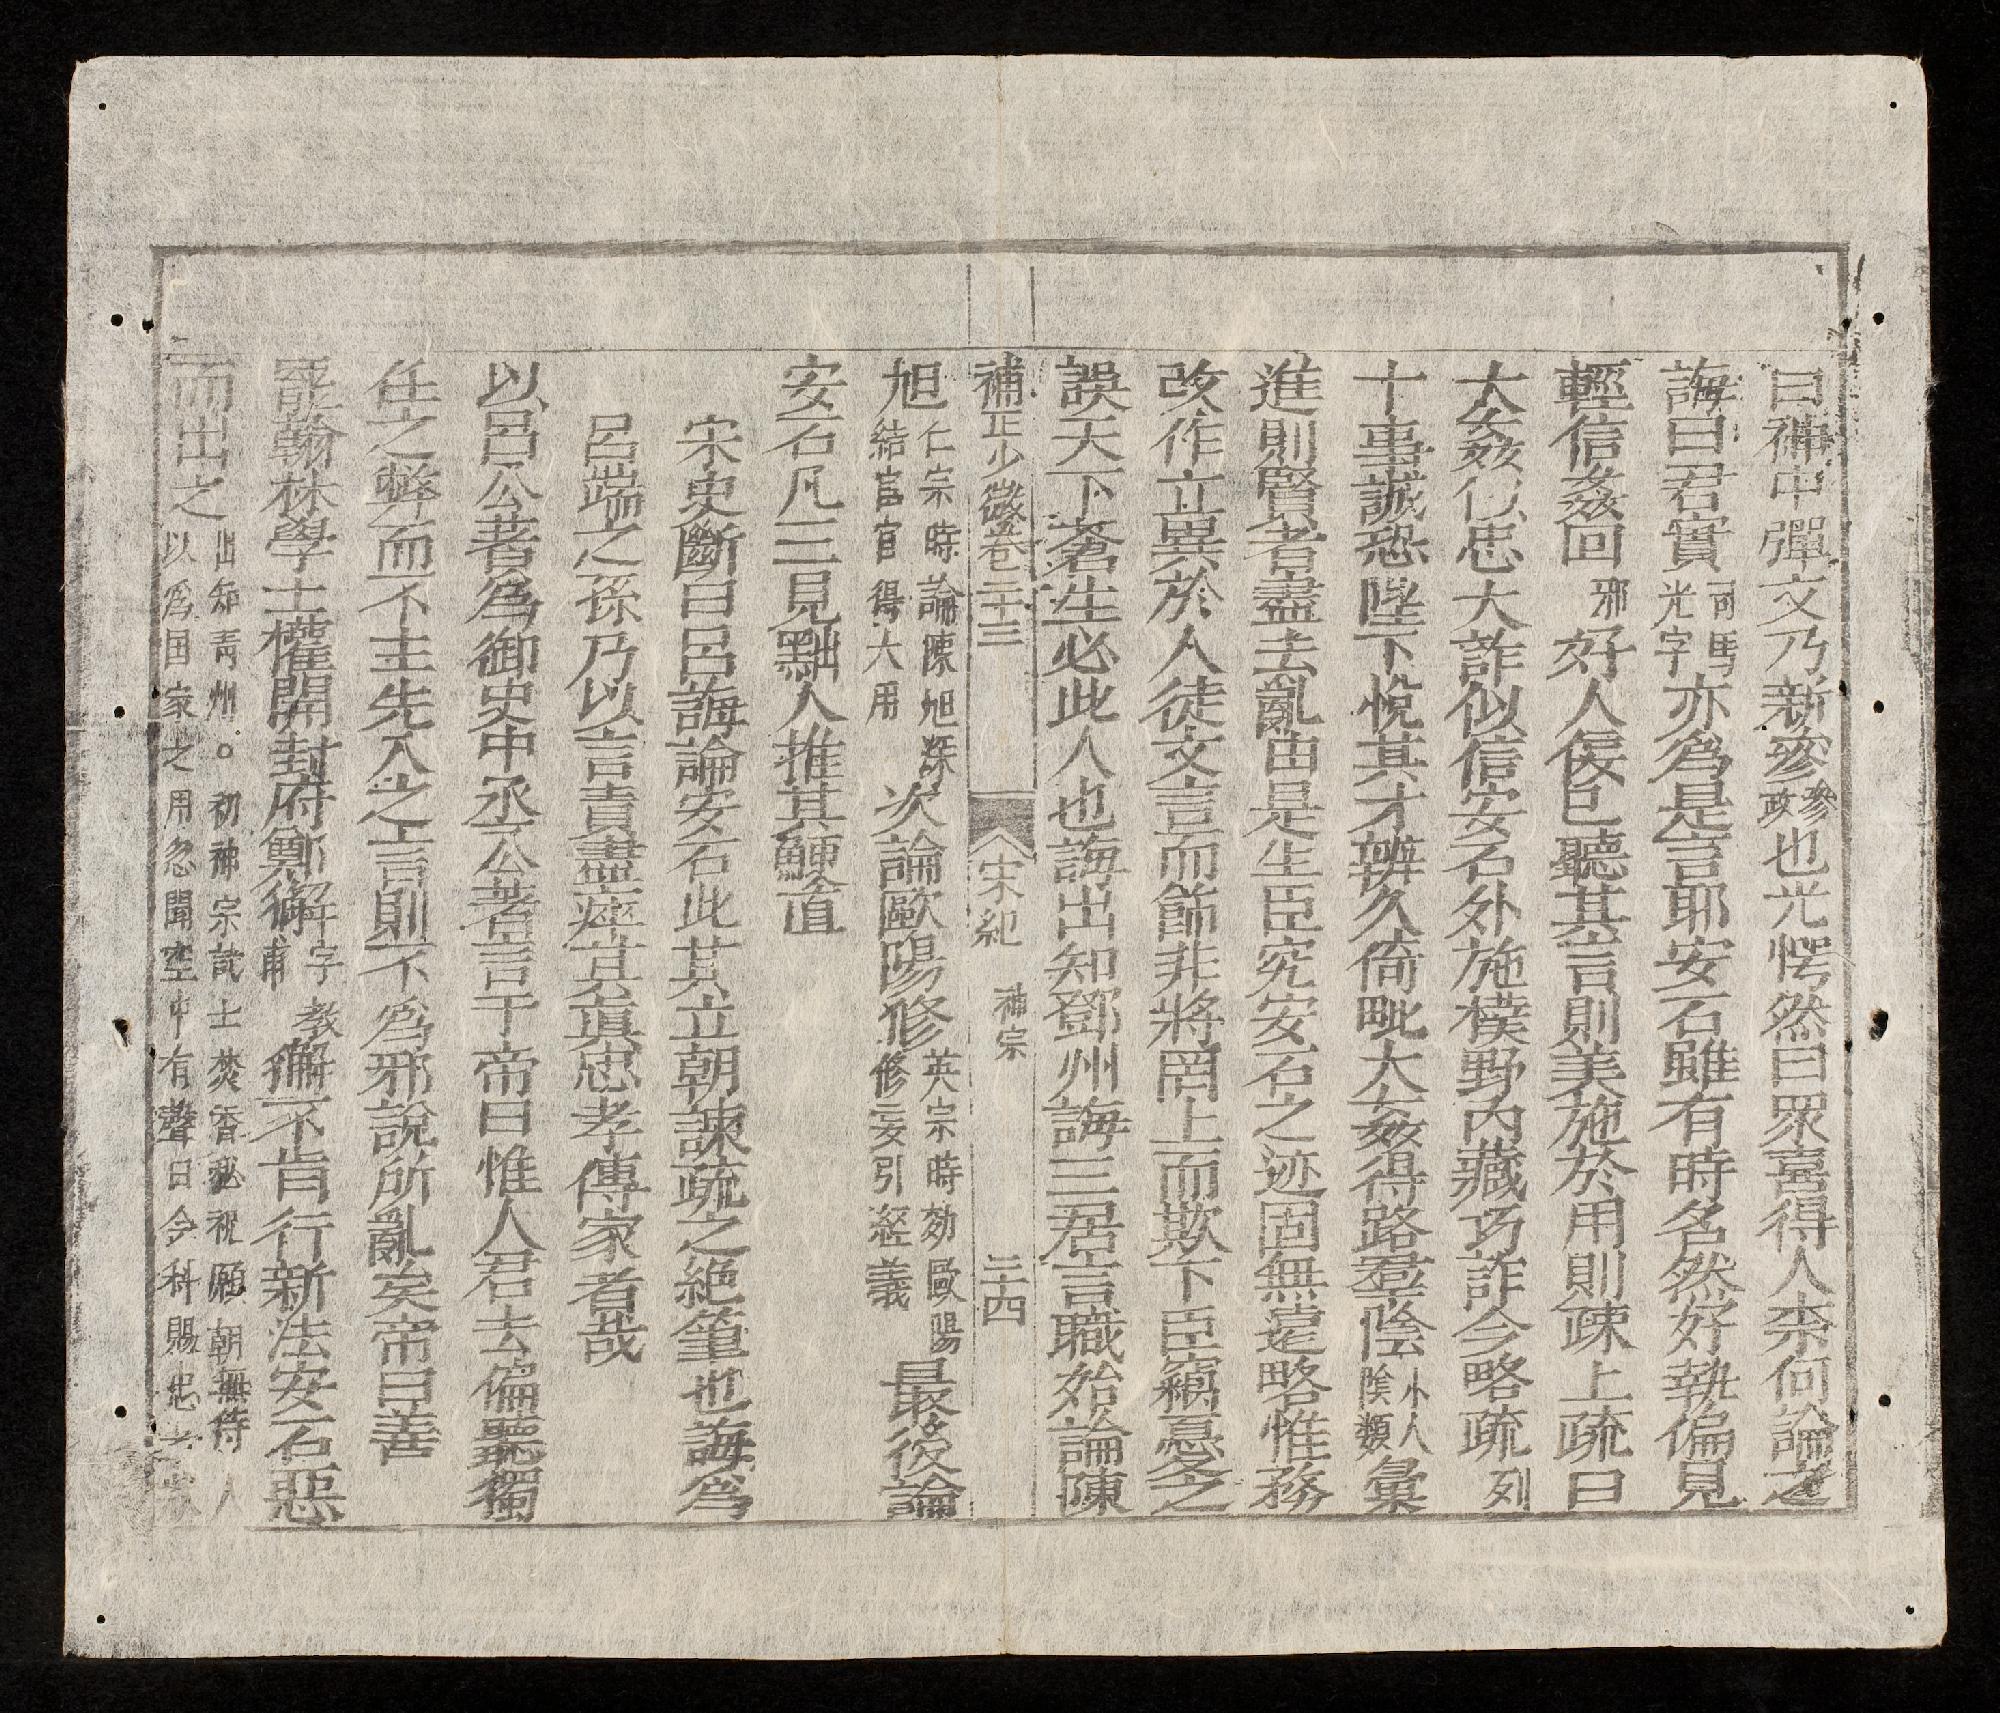 曰袖中彈文乃新叅參政也光愕然曰眾喜得人柰何論之
誨曰君實司馬光字亦爲是言耶安石雖有時名然好執偏見
輕信姦回邪好人佞己聽其言則美施於用則疎上疏曰
大姦似忠大詐似信安石外施樸野內藏巧詐今略疏列
十事誠恐陛下悅其才辨久倚毗大姦得路羣陰小人陰類彙
進則賢者盡去亂由是生臣究安石之迹固無遠略惟務
改作立異於人徒文言而飾非將罔上而欺下臣竊憂之
誤天下蒼生必此人也誨出知鄧州誨三居言職始論陳
補正少微卷二十三 宋紀 神宗 三十四
旭仁宗時論陳旭深結宦官得大用次論歐陽修英宗時効歐陽修妄引經義最後論
安石凡三見黜人推其鯁直
宋史斷曰呂誨論安石此其立朝諫疏之絕筆也誨爲
呂端之孫乃以言責盡瘁其眞忠孝傳家者哉
以呂公著爲御史中丞公著言于帝曰惟人君去偏聽獨
任之弊而不主先入之言則不爲邪說所亂矣帝曰善
罷翰林學士權開封府鄭獬獬字教甫獬不肯行新法安石惡
而出之出知靑州○初神宗試士焚香祕祝願朝無侍人以爲国家之用忽聞空中有聲曰今科賜忠